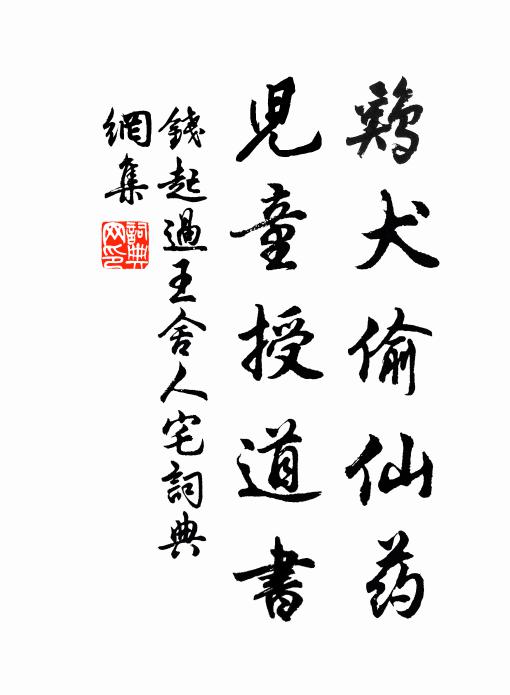 鷄犬偷仙药
児童授道書
錢起過王舍人宅詞典
網集
詞典
网印